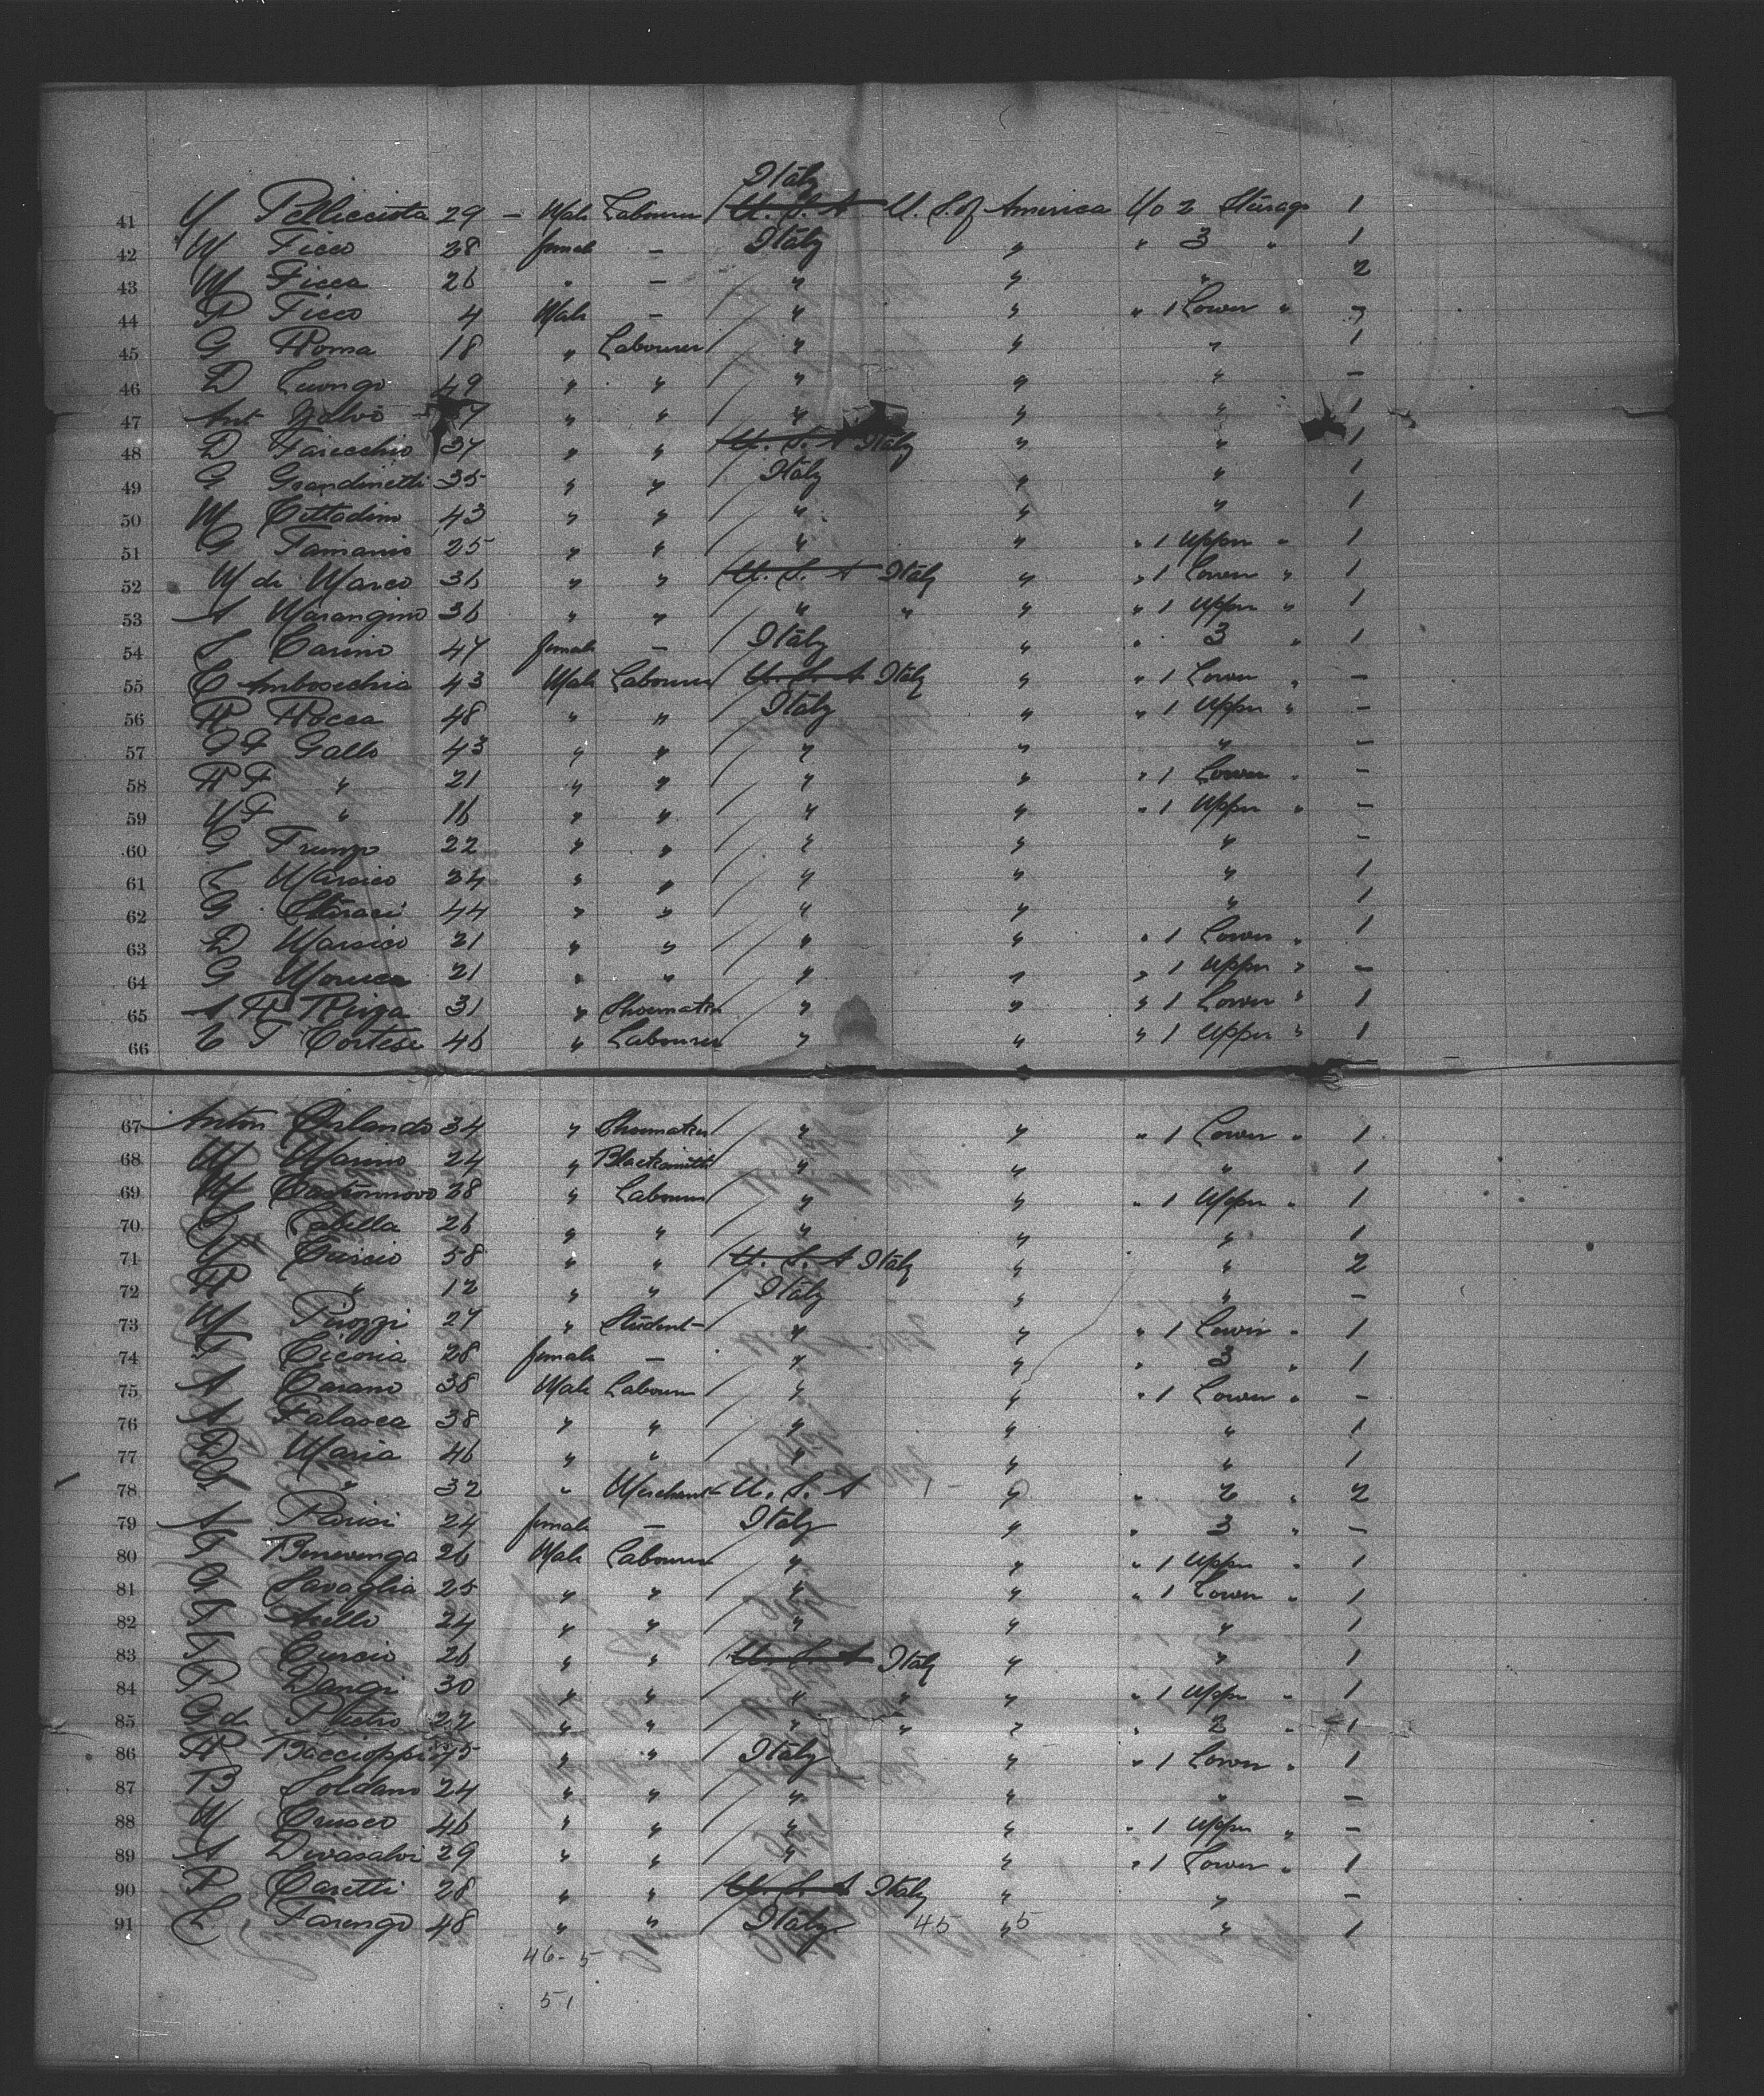 Italy
41 Y Pelliccista 29 - Male Labourer U. S. A U. S. of America No 2 Steerage 1
42 M Ficco 28 female - Italy " " 3 " 1
43 M Ficca 26 " - " " " 2
44 P Ficco 4 Male - " " " 1 Lower " -
45 G Roma 18 " Labourer " " " 1
46 D Luongo 49 " " " " " -
47 Ant " " " " " 1
48 D Faricchio 37 " " U. S. A Italy " " 1
49 G Grandinetti 35 " " Italy " " 1
50 M Cittadino 43 " " " " " 1
51 G Famanio 25 " " " " " 1 Upper " 1
52 M di Marco 36 " " U. S. A Italy " " 1 Lower " 1
53 A Marangino 36 " " " " " " 1 Upper " 1
54 S Carino 47 female - Italy " " 3 " 1
55 C Ambosechia 43 Male Labourer U. S. A Italy " " 1 Lower " -
56 R Rocca 48 " " Italy " " 1 Upper " -
57 G F Gallo 43 " " " " " -
58 R F " 21 " " " " " 1 Lower " -
59 Y F " 16 " " " " " 1 Upper " -
60 G Frunzo 22 " " " " " -
61 L Marsico 24 " " " " " 1
62 G Staraci 44 " " " " " 1
63 D Marsico 21 " " " " " 1 Lower " 1
64 G Monica 21 " " " " " 1 Upper " -
65 A R Riga 31 " Shoemaker " " " 1 Lower " 1
66 C F Cortese 46 " Labourer " " " 1 Upper " 1
67 Anton Orlando 34 " Shoemaker " " " 1 Lower " 1
68 M Marino 24 " Blacksmith " " " 1
69 M Castronnovo 28 " Labourer " " " 1 Upper " 1
70 Labella 26 " " " " " 1
71 Y Curcio 58 " " U. S. A Italy " " 2
72 R " 12 " " Italy " " -
73 M Pirozzi 27 " Student " " " 1 Lower " 1
74 Cicoria 28 female - " " " 3 " 1
75 A Carano 38 Male Labourer " " " 1 Lower " -
76 A Falasca 38 " " " " " 1
77 D Maria 46 " " " " " 1
78 " 32 " Merchant U. S. A " " 2 " 2
79 A Parisi 24 female - Italy " " 3 " -
80 Benevenga 26 Male Labourer " " " 1 Upper " 1
81 G Savaglia 25 " " " " " 1 Lower " 1
82 Aiello 24 " " " " " 1
83 Curcio 26 " " U. S. A Italy " " 1
84 P Dangi 30 " " " " " " 1 Upper " 1
85 G di Pietro 22 " " " " " " 2 " 1
86 R Baccioppi 45 " " Italy " " 1 Lower " 1
87 B Soldano 24 " " " " " -
88 M Crusco 46 " " " " " 1 Upper " -
89 A Divasalvi 29 " " " " " 1 Lower " 1
90 P Caretti 28 " " U. S. A Italy " " -
91 L Farengo 48 " " Italy 45 " 5 " 1
46 - 5
51